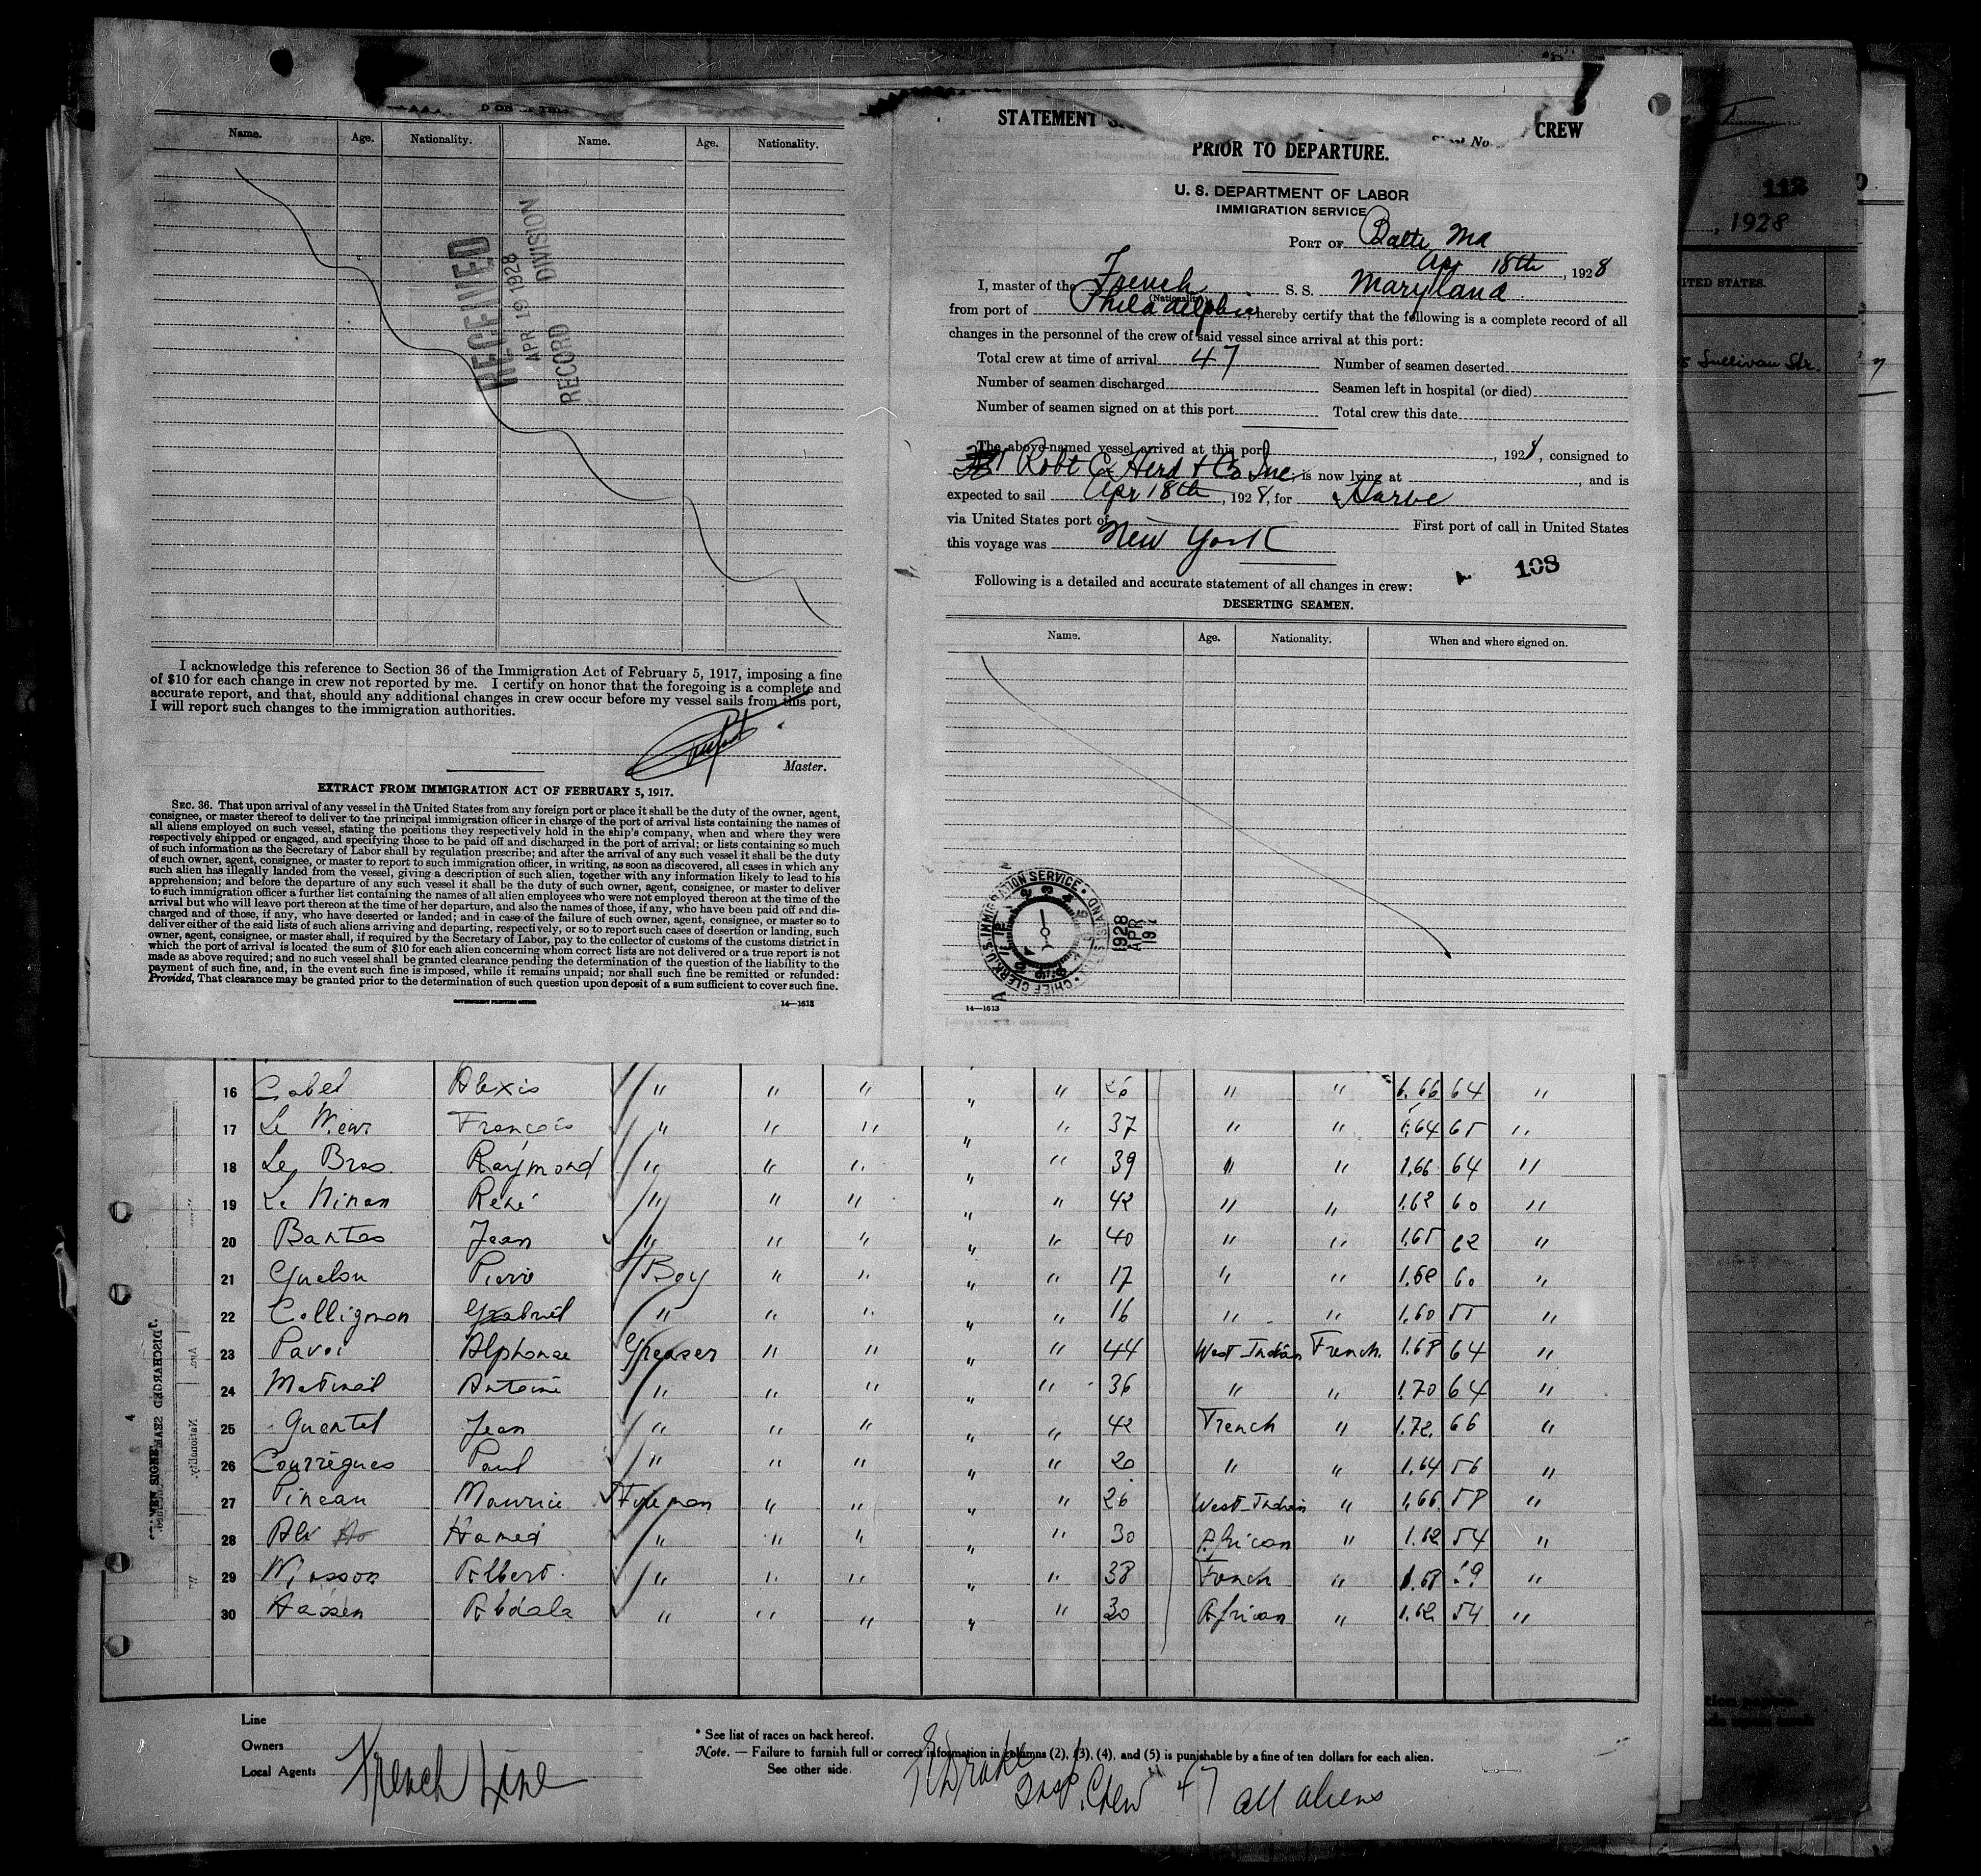 Name. Age. Nationality. Name. Age. Nationality.
RECEIVED
APR 19 1928
RECORD DIVISION
I acknowledge this reference to Section 36 of the Immigration Act of February 5, 1917, imposing a fine
of $10 for each change in crew not reported by me. I certify on honor that the foregoing is a complete and
accurate report, and that, should any additional changes in crew occur before my vessel sails from this port,
I will report such changes to the immigration authorities.
Master.
EXTRACT FROM IMMIGRATION ACT OF FEBRUARY 5, 1917.
SEC. 36. That upon arrival of any vessel in the United States from any foreign port or place it shall be the duty of the owner, agent,
consignee, or master thereof to deliver to the principal immigration officer in charge of the port of arrival lists containing the names of
all aliens employed on such vessel, stating the positions they respectively hold in the ship's company, when and where they were
respectively shipped or engaged, and specifying those to be paid off and discharged in the port of arrival; or lists containing so much
of such information as the Secretary of Labor shall by regulation prescribe; and after the arrival of any such vessel it shall be the duty
of such owner, agent, consignee, or master to report to such immigration officer, in writing, as soon as discovered, all cases in which any
such alien has illegally landed from the vessel, giving a description of such alien, together with any information likely to lead to his
apprehension; and before the departure of any such vessel it shall be the duty of such owner, agent, consignee, or master to deliver
to such immigration officer a further list containing the names of all alien employees who were not employed thereon at the time of the
arrival but who will leave port thereon at the time of her departure, and also the names of those, if any, who have been paid off and dis-
charged and of those, if any, who have deserted or landed; and in case of the failure of such owner, agent, consignee, or master so to
deliver either of the said lists of such aliens arriving and departing, respectively, or so to report such cases of desertion or landing, such
owner, agent, consignee, or master shall, if required by the Secretary of Labor, pay to the collector of customs of the customs district in
which the port of arrival is located the sum of $10 for each alien concerning whom correct lists are not delivered or a true report is not
made as above required; and no such vessel shall be granted clearance pending the determination of the question of the liability to the
payment of such fine, and, in the event such fine is imposed, while it remains unpaid; nor shall such fine be remitted or refunded:
Provided, That clearance may be granted prior to the determination of such question upon deposit of a sum sufficient to cover such fine.
GOVERNMENT PRINTING OFFICE 14—1613
STATEMENT CREW
PRIOR TO DEPARTURE.
U. S. DEPARTMENT OF LABOR
IMMIGRATION SERVICE
PORT OF Balto Md
Apr 18th, 1928
I, master of the French S. S. Maryland
(Nationality)
from port of Philadelphia, hereby certify that the following is a complete record of all
changes in the personnel of the crew of said vessel since arrival at this port:
Total crew at time of arrival 47 Number of seamen deserted
Number of seamen discharged Seamen left in hospital (or died)
Number of seamen signed on at this port Total crew this date
The above-named vessel arrived at this port , 1928, consigned to
Robt C Herd & Co Inc, is now lying at , and is
expected to sail Apr 18th, 1928, for Harve
via United States port of First port of call in United States
this voyage was New York
108
Following is a detailed and accurate statement of all changes in crew:
DESERTING SEAMEN.
Name. Age. Nationality. When and where signed on.
CHIEF CLERK U.S. IMMIGRATION SERVICE
1928 APR 19
14—1613
112
, 1928
ITED STATES.
Sullivan Str.
16 Gabel Alexis " " " " " 26 " " 1.66 64 "
17 François " " " " " 37 " " 1.64 65 "
18 Le Bras Raymond " " " " " 39 " " 1.66 64 "
19 Le Ninan René " " " " " 42 " " 1.62 60 "
20 Bantas Jean " " " " " 40 " " 1.65 62 "
21 Quelou Pierre Boy " " " " 17 " " 1.60 60 "
22 Collignon Gabriel " " " " " 16 " " 1.60 55 "
23 Pavoi Alphonse Greaser " " " " 44 West-Indian French. 1.68 64 "
24 Matinal Antoine " " " " " 36 " " 1.70 64 "
25 Quentel Jean " " " " " 42 French " 1.72 66 "
26 Courrègues Paul " " " " " 20 " " 1.64 56 "
27 Pineau Maurice Fireman " " " " 26 West-Indian " 1.66 58 "
28 Ali Hamed " " " " " 30 African " 1.62 54 "
29 Albert " " " " " 38 French " 1.68 59 "
30 Hassen Abdala " " " " " 30 African " 1.62 54 "
Line
Owners
Local Agents French Line
* See list of races on back hereof.
Note. — Failure to furnish full or correct information in columns (2), (3), (4), and (5) is punishable by a fine of ten dollars for each alien.
See other side.
Drake
Insp. Crew 47 all aliens